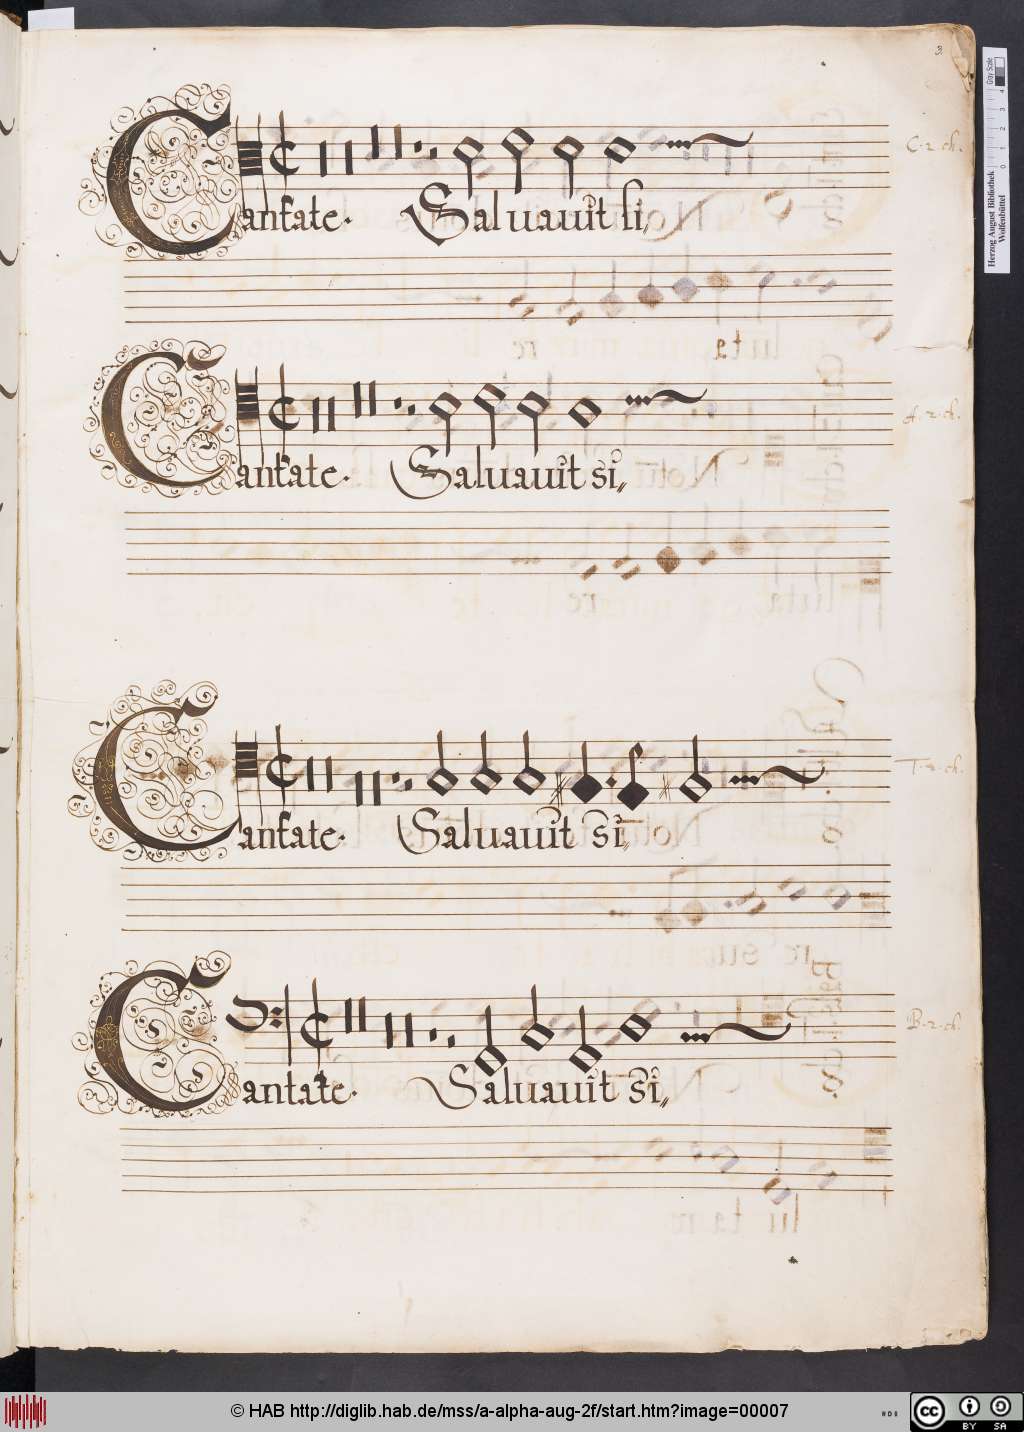 3
C·2·ch·
Cantate· Saluauit si,,
A·2·ch·
Cantate· Saluauit si,,
T·2·ch·
Cantate· Saluauit si,,
B·2·ch·
Cantate· Saluauit si,,
Gray Scale
0 1 2 3 4
Herzog August Bibliothek
Wolfenbüttel
© HAB http://diglib.hab.de/mss/a-alpha-aug-2f/start.htm?image=00007
CC BY SA